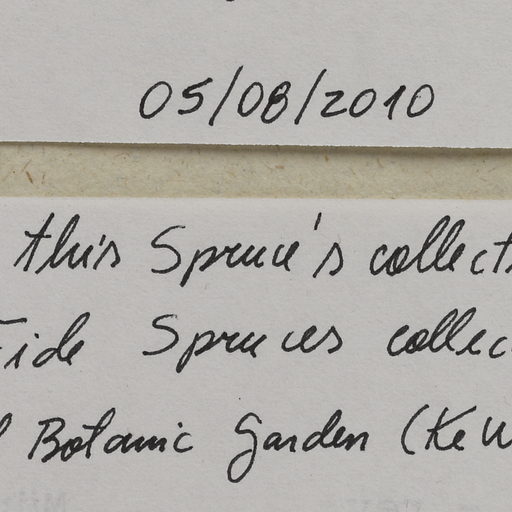 05/08/2010
this Spruce's collect
Fide Spruces collec
Botanic Garden (Kew